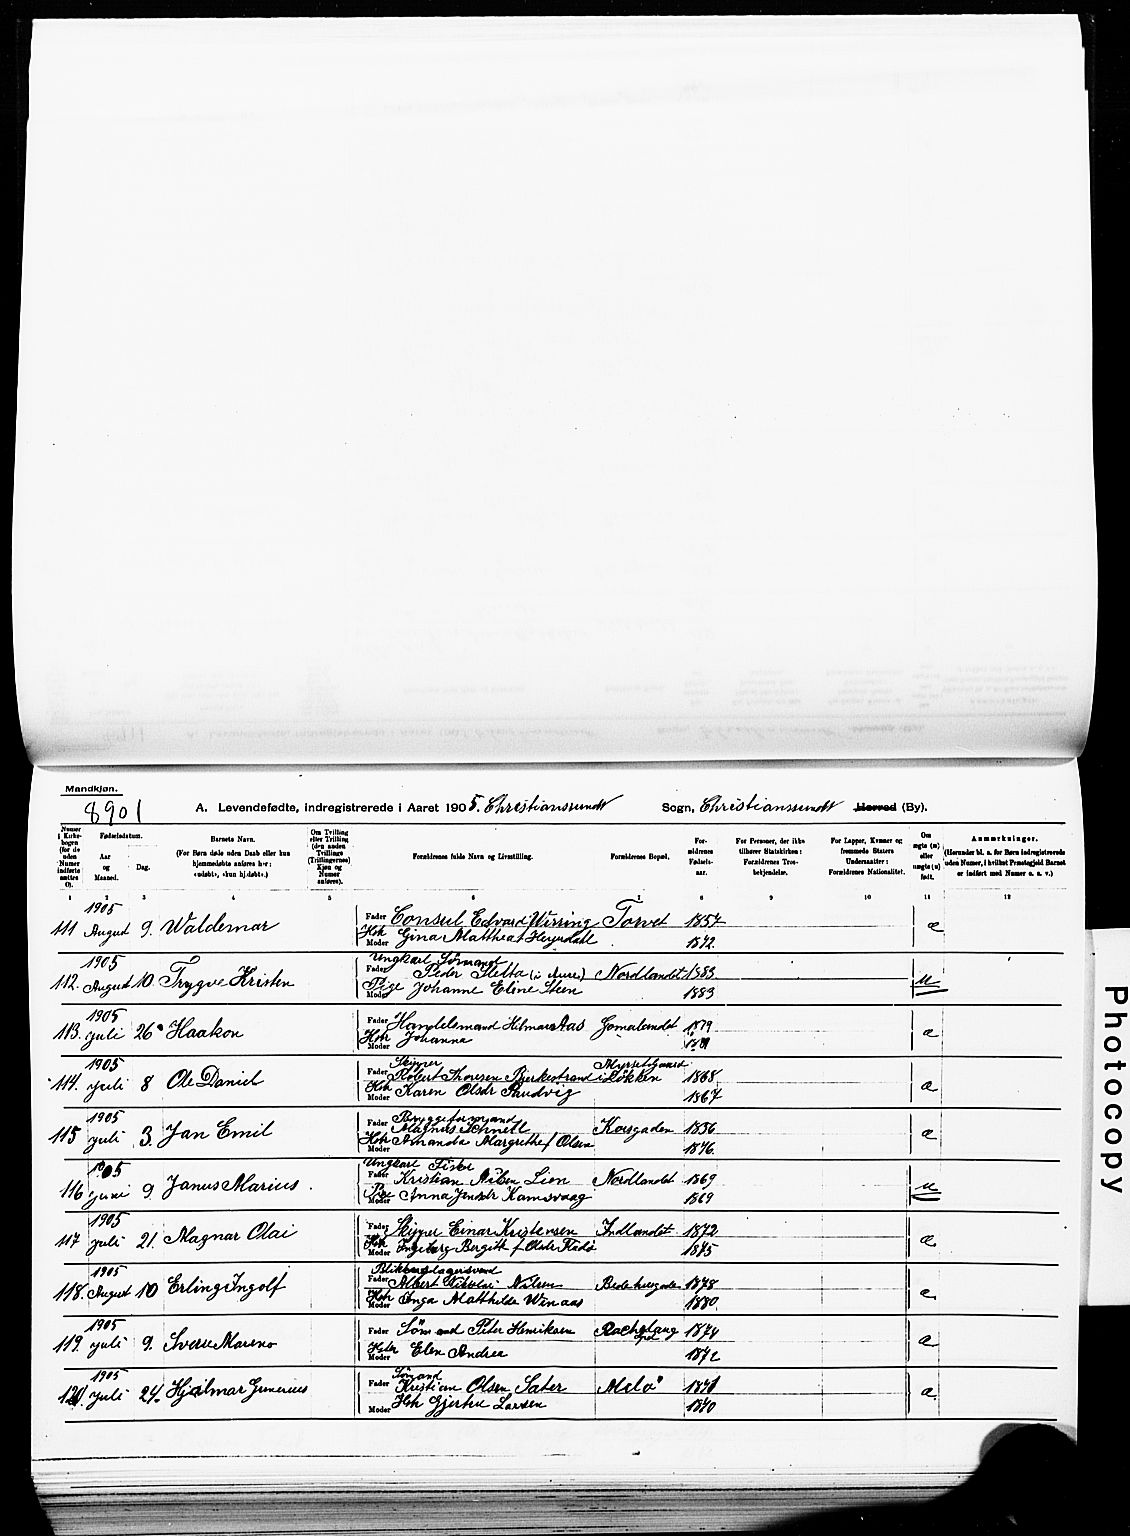 Mandkjøn.
8901
A. Levendefødte, indregistrerede i Aaret 1905. Christianssundt Sogn, Christianssundt Herred (By).
Numer i Kirkebogen (for de uden Numer indførte sættes 0).
Fødselsdatum.
Aar og Maaned.
Dag.
Barnets Navn.
(For Børn døde uden Daab eller kun hjemmedøbte anføres her: «udøbt», «kun hj.døbt».)
Om Tvilling eller Trilling (den anden Tvillings (Trillingernes) Kjøn og Numer anføres).
Forældrenes fulde Navn og Livsstilling.
Forældrenes Bopæl.
Forældrenes Fødselsaar.
For Personer, der ikke tilhører Statskirken: Forældrenes Trosbekjendelse.
For Lapper, Kvæner og fremmede Staters Undersaatter: Forældrenes Nationalitet.
Om ægte (æ) eller uægte (u) født.
Anmærkninger.
(Herunder bl. a. for Børn indregistrerede uden Numer, i hvilket Præstegjeld Barnet er indført med Numer o. s. v.)
1 2 3 4 5 6 7 8 9 10 11 12
1905
111 August 9. Waldemar Fader Consul Edvard Wirring Torvet 1857 æ
Hst. Moder Gina Matthea f. Heyerdahl 1872.
1905 Ungkarl Sømand
112. August 10. Trygve Kristen Fader Peder Sletta (i Aure) Nordlandet 1883. u
Pige Moder Johanne Eline Steen 1883
1905
113. Juli 26. Haakon Fader Handelsmand Hilmar Aas Gomalandet 1879 æ
Hst Moder Johanna
1905 Skipper
114. Juli 8 Ole Daniel Fader Robert Thoresen Bjerkestrand i Løkken 1868 æ
Hst. Moder Karen Olsdr Sandvig 1867
1905 Bryggeformand
115 Juli 3. Jan Emil Fader Magnus Schnell Korsgaden 1836 æ
Hst Moder Amanda Margrethe f. Olsen 1876.
1905 Ungkarl Fisker
116 Juni 9. Janus Marius. Fader Kristian Nilsen Lien Nordlandet 1869 u
Pige Moder Anna Jensdr Kamsvaag 1869
1905
117 Juli 21. Magnar Olai Fader Skipper Einar Kristensen Indlandet 1872 æ
Hst. Moder Ingeborg Bergitte f. 1875
1905 Blikkenslagersvend
118. August 10 Erling Ingolf Fader Albert Nikolai Nilsen Bedehusgaden 1878 æ
Hst. Moder Inga Matthilde Winaas 1880.
1905
119. Juli 9. Sverre Mareno Fader Sømand Peter Henriksen 1874 æ
Moder Elen Andrea 1872
1905 Sømand
120. Juli 24. Hjalmar Gunerius Fader Kristian Olsen Sater Melø 1871 æ
Moder Hst. Gjertru Larsen 1870
Photocopy